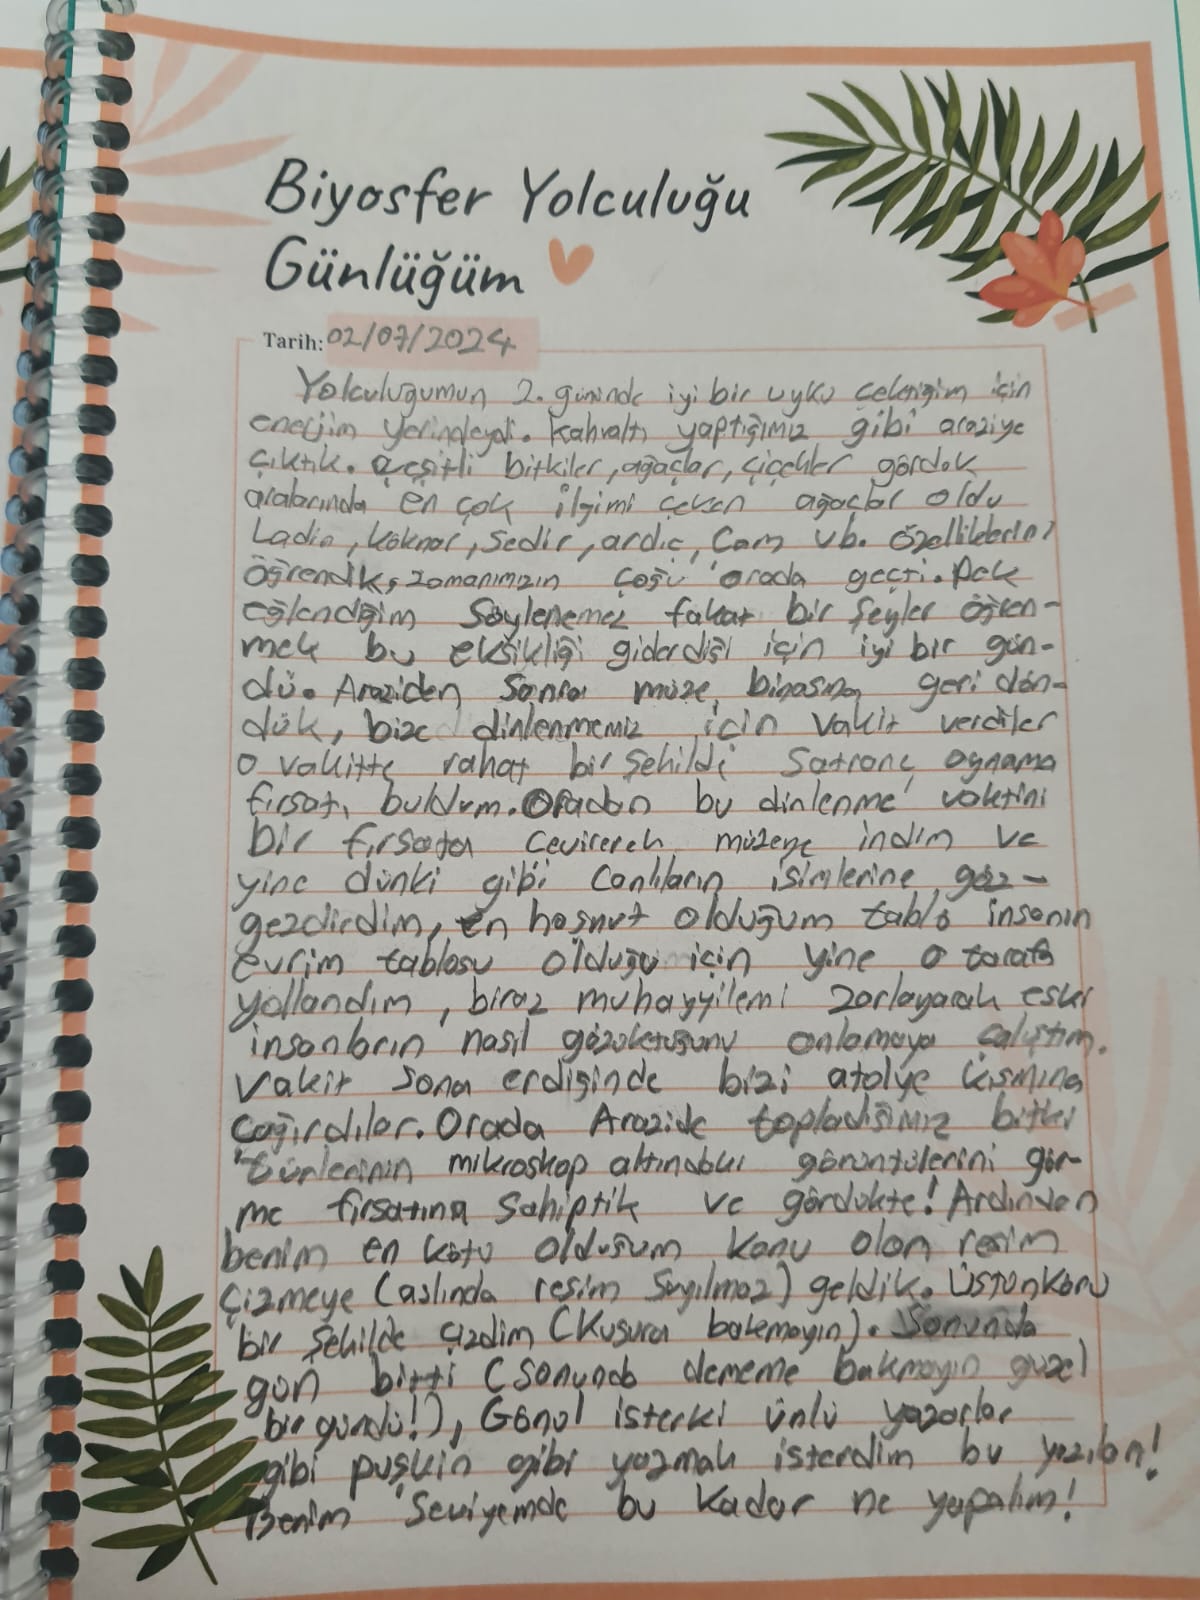 Biyosfer Yolculuğu
Günlüğüm
Tarih: 02/07/2024
Yolculuğumun 2. gününde iyi bir uyku çektiğim için
enerjim yerindeydi. Kahvaltı yaptığımız gibi araziye
çıktık. Çeşitli bitkiler, ağaçlar, çiçekler gördük
aralarında en çok ilgimi çeken ağaçlar oldu
Ladin, köknar, sedir, ardıç, Çam vb. özelliklerini
öğrendik, zamanımızın çoğu orada geçti. Pek
eğlendiğim söylenemez fakat bir şeyler öğren-
mek bu eksikliği giderdiği için iyi bir gün-
dü. Araziden sonra müze binasına geri dön-
dük, bize dinlenmemiz için vakit verdiler
o vakitte rahat bir şekilde satranç oynama
fırsatı buldum. Oradan bu dinlenme vaktini
bir fırsata çevirerek müzeye indim ve
yine dünki gibi canlıların isimlerine göz-
gezdirdim, en hoşnut olduğum tablo insanın
evrim tablosu olduğu için yine o tarafa
yollandım, biraz muhayyilemi zorlayarak eski
insanların nasıl gözüktüğünü anlamaya çalıştım.
Vakit sona erdiğinde bizi atölye kısmına
çağırdılar. Orada Arazide topladığımız bitki
türlerinin mikroskop altındaki görüntülerini gör-
me fırsatına sahiptik ve gördükte! Ardından
benim en kötü olduğum konu olan resim
çizmeye (aslında resim sayılmaz) geldik. Üstünkörü
bir şekilde çizdim (Kusura bakmayın). Sonunda
gün bitti (sonunda dememe bakmayın güzel
bir gündü!), Gönül isterki ünlü yazarlar
gibi puşkin gibi yazmak isterdim bu yazıları!
Benim seviyemde bu kadar ne yapalım!